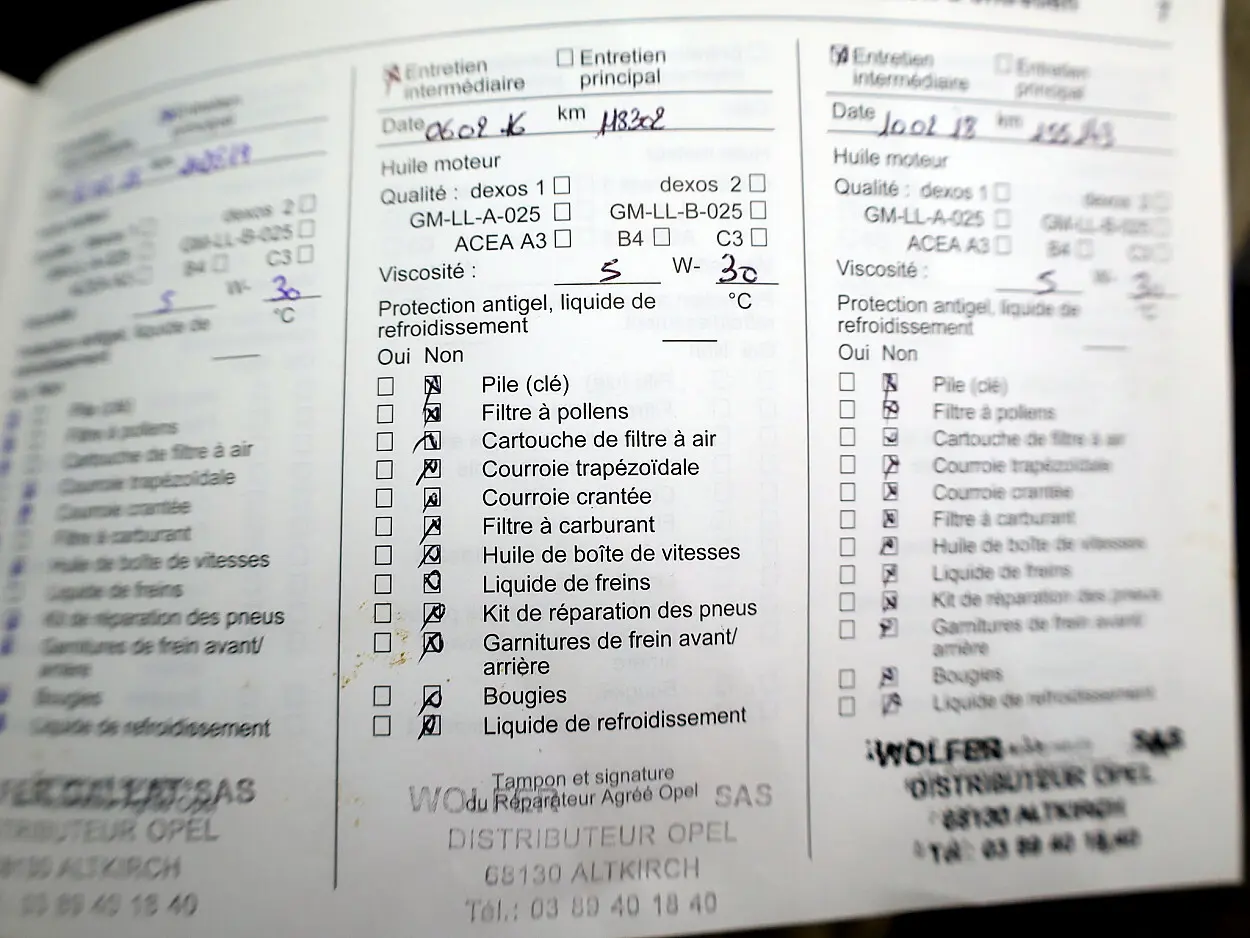 Entretien
principal
5 W- 30
°C
dexos 2
GM-LL-B-025
B4 C3
Protection antigel, liquide de
Pile (clé)
Filtre à pollens
Cartouche de filtre à air
Courroie trapézoïdale
Courroie crantée
Filtre à carburant
Huile de boîte de vitesses
Liquide de freins
Kit de réparation des pneus
Garnitures de frein avant/
arrière
Bougies
Liquide de refroidissement
SAS
DISTRIBUTEUR OPEL
68130 ALTKIRCH
03 89 40 18 40
Entretien
intermédiaire
Entretien
principal
Date 06 02 16 km 118302
Huile moteur
Qualité : dexos 1 dexos 2
GM-LL-A-025 GM-LL-B-025
ACEA A3 B4 C3
Viscosité : 5 W- 30
Protection antigel, liquide de °C
refroidissement
Oui Non
Pile (clé)
Filtre à pollens
Cartouche de filtre à air
Courroie trapézoïdale
Courroie crantée
Filtre à carburant
Huile de boîte de vitesses
Liquide de freins
Kit de réparation des pneus
Garnitures de frein avant/
arrière
Bougies
Liquide de refroidissement
Tampon et signature
du Réparateur Agréé Opel
WOLFER SAS
DISTRIBUTEUR OPEL
68130 ALTKIRCH
Tél.: 03 89 40 18 40
Entretien
intermédiaire
Entretien
principal
Date 10 02 18 km
Huile moteur
Qualité : dexos 1 dexos 2
GM-LL-A-025 GM-LL-B-025
ACEA A3 B4 C3
Viscosité : 5 W- 30
Protection antigel, liquide de °C
refroidissement
Oui Non
Pile (clé)
Filtre à pollens
Cartouche de filtre à air
Courroie trapézoïdale
Courroie crantée
Filtre à carburant
Huile de boîte de vitesses
Liquide de freins
Kit de réparation des pneus
Garnitures de frein avant/
arrière
Bougies
Liquide de refroidissement
WOLFER SAS
DISTRIBUTEUR OPEL
68130 ALTKIRCH
Tél.: 03 89 40 18 40